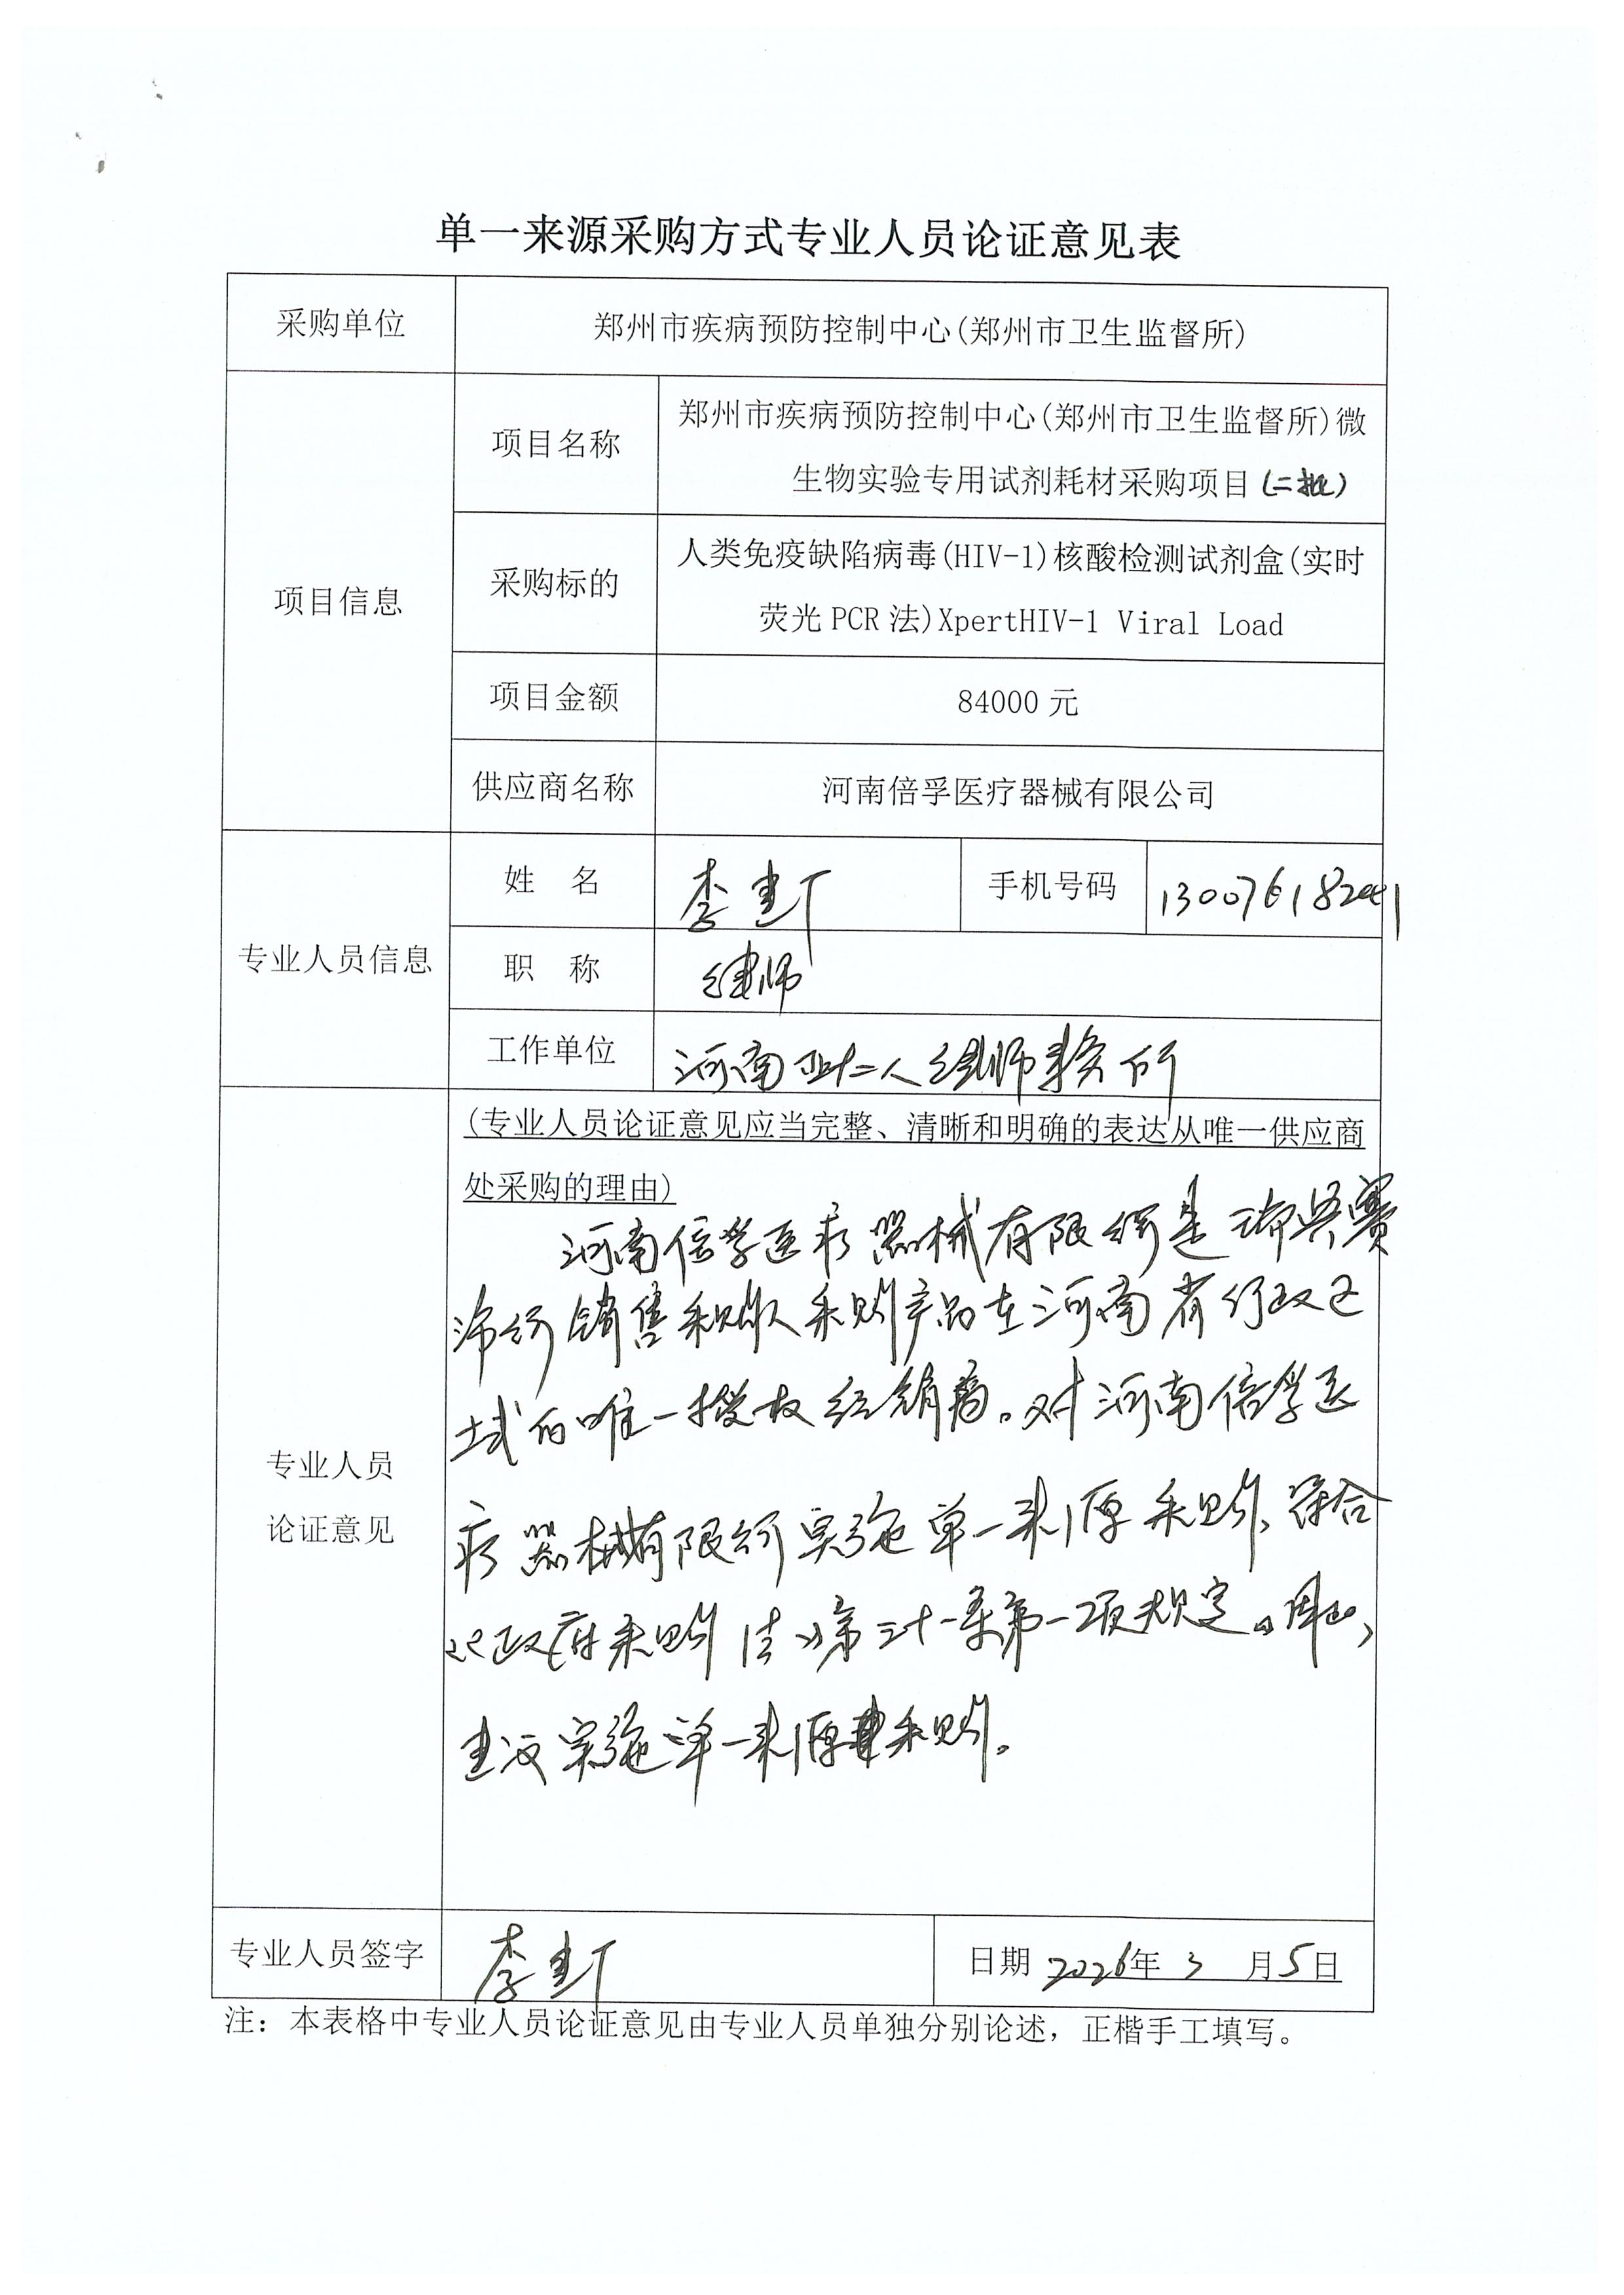 单一来源采购方式专业人员论证意见表
采购单位 郑州市疾病预防控制中心(郑州市卫生监督所)
项目信息
项目名称 郑州市疾病预防控制中心(郑州市卫生监督所)微
生物实验专用试剂耗材采购项目(二批)
采购标的 人类免疫缺陷病毒(HIV-1)核酸检测试剂盒(实时
荧光PCR法)XpertHIV-1 Viral Load
项目金额 84000元
供应商名称 河南倍孚医疗器械有限公司
专业人员信息
姓 名 李建 手机号码
职 称 律师
工作单位 河南 人律师事务所
专业人员
论证意见
(专业人员论证意见应当完整、清晰和明确的表达从唯一供应商
处采购的理由)
河南倍孚医疗器械有限公司是 赛
销售和 产品在河南省行政区
域的唯一授权经销商。对河南倍孚医
疗器械有限公司实施单一来源采购,符合
《政府采购法》第三十一条第一项规定。因此,
建议实施单一来源采购。
专业人员签字 李建 日期 2026年3月5日
注:本表格中专业人员论证意见由专业人员单独分别论述,正楷手工填写。